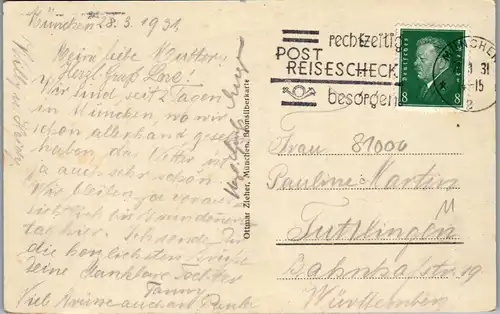 München 28.3.1931
Meine liebe Mutter,
Herzl. Gruß Lore!
Wir sind seit 2 Tagen
in München, wo wir
schon allerhand gesehen
haben, das Wetter ist
ja auch sehr schön
Wir bleiben ja voraus
sichtlich bis
tag hier. Sende Dir
die herzlichsten Grüße
Deine dankbare Tochter
Fanny
Viel Grüsse auch an
Ottmar Zieher, München, Bromsilberkarte
rechtzeitig
POST
REISESCHECK
besorgen
MÜNCHEN
31
-15
2
Deutsches Reich
8 8
Frau 81006
Pauline Martin
Tuttlingen
Bahnhofstr. 19
Württemberg